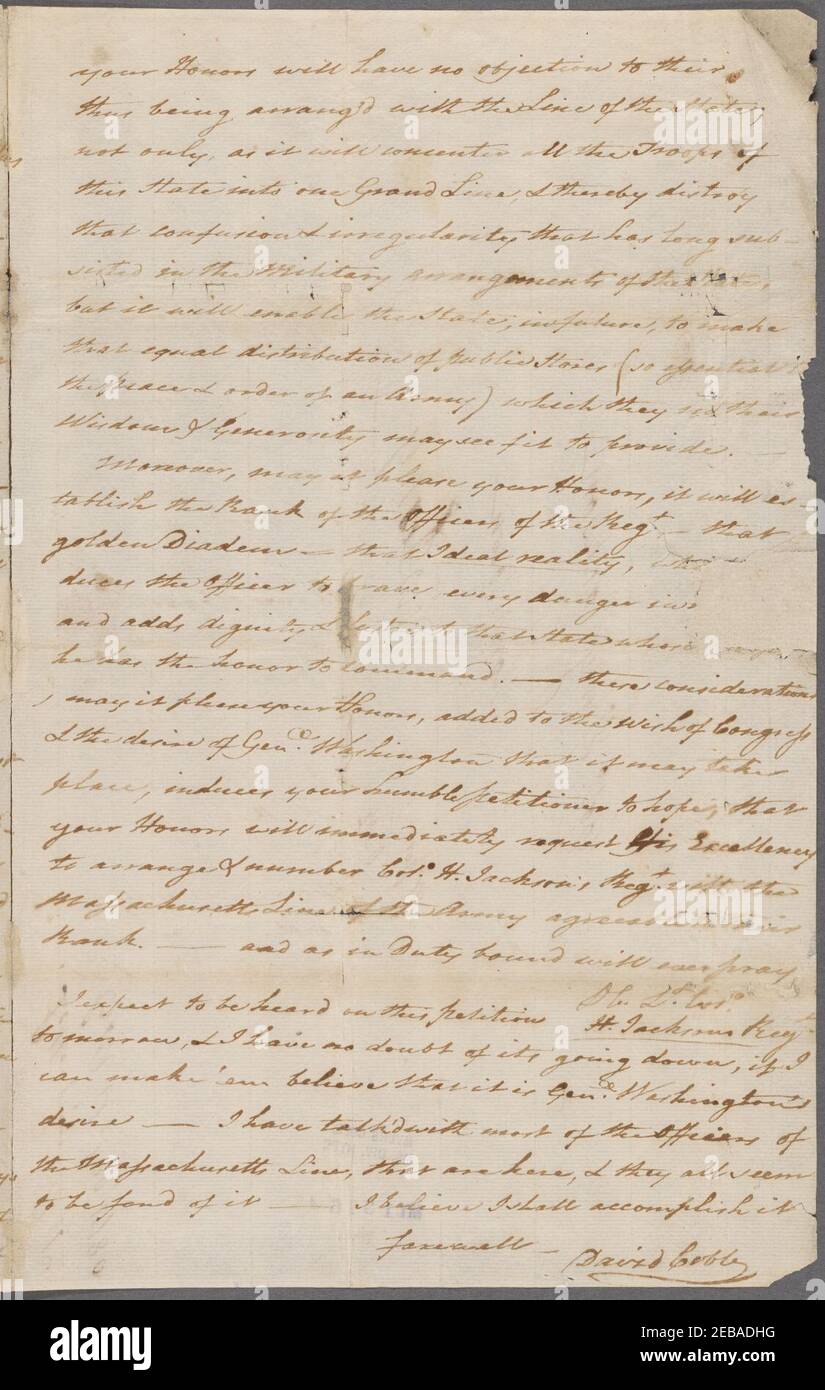 your Honors will have no objection to their
thus being arrang'd with the Line of the State,
not only, as it will concenter all the Troops of
this State into one Grand Line, & thereby distroy
that confusion & irregularity that has long sub-
sisted in the Military arrangements of the State,
but it will enable the State, in future, to make
that equal distribution of public Stores (so essential to
the peace & order of an Army) which they in their
Wisdom & Generosity may see fit to provide.
Moreover, may it please your Honors, it will es-
tablish the Rank of the Officers of the Regt — that
golden Diadem — that Ideal reality,
duces the Officer to brave every danger
and adds dignity & to that State whose
he has the honor to command. — these considerations
, may it please your Honors, added to the wish of Congress
& the desire of Genl. Washington that it may take
place, induces your humble petitioner to hope, that
your Honors will immediately request His Excellency
to arrange & number Colo. H. Jackson's Regt with the
Massachusetts Line of the Army agreeable to their
Rank. — and as in Duty bound will ever pray
D C. Lt. Colo.
H. Jacksons Regt
I expect to be heard on this petition
tomorrow, & I have no doubt of its going down, if I
can make 'em believe that it is Genl. Washington's
desire — I have talk'd with most of the Officers of
the Massachusetts Line, that are here, & they all seem
to be fond of it — I believe I shall accomplish it
farewell —
David Cobb
alamy
Image ID: 2EBADHG
www.alamy.com